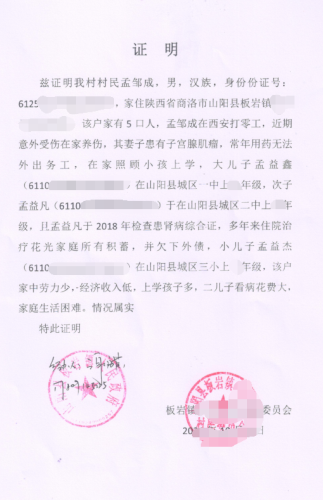 证 明
兹证明我村村民孟邹成，男，汉族，身份份证号：
6125 ，家住陕西省商洛市山阳县板岩镇
该户家有5口人，孟邹成在西安打零工，近期
意外受伤在家养伤，其妻子患有子宫腺肌瘤，常年用药无法
外出务工，在家照顾小孩上学，大儿子孟益鑫
（6110 在山阳县城区一中上 年级，次子
孟益凡（6110 ）于在山阳县城区二中上 年
级，且孟益凡于2018年检查患肾病综合证，多年来住院治
疗花光家庭所有积蓄，并欠下外债，小儿子孟益杰
（6110 在山阳县城区三小上 年级，该户
家中劳力少，经济收入低，上学孩子多，二儿子看病花费大，
家庭生活困难。情况属实
特此证明
板岩镇 委员会
20 日